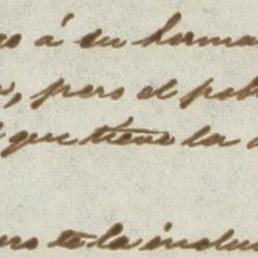 á su herma
pero el pob
que tiene la
te la inclu